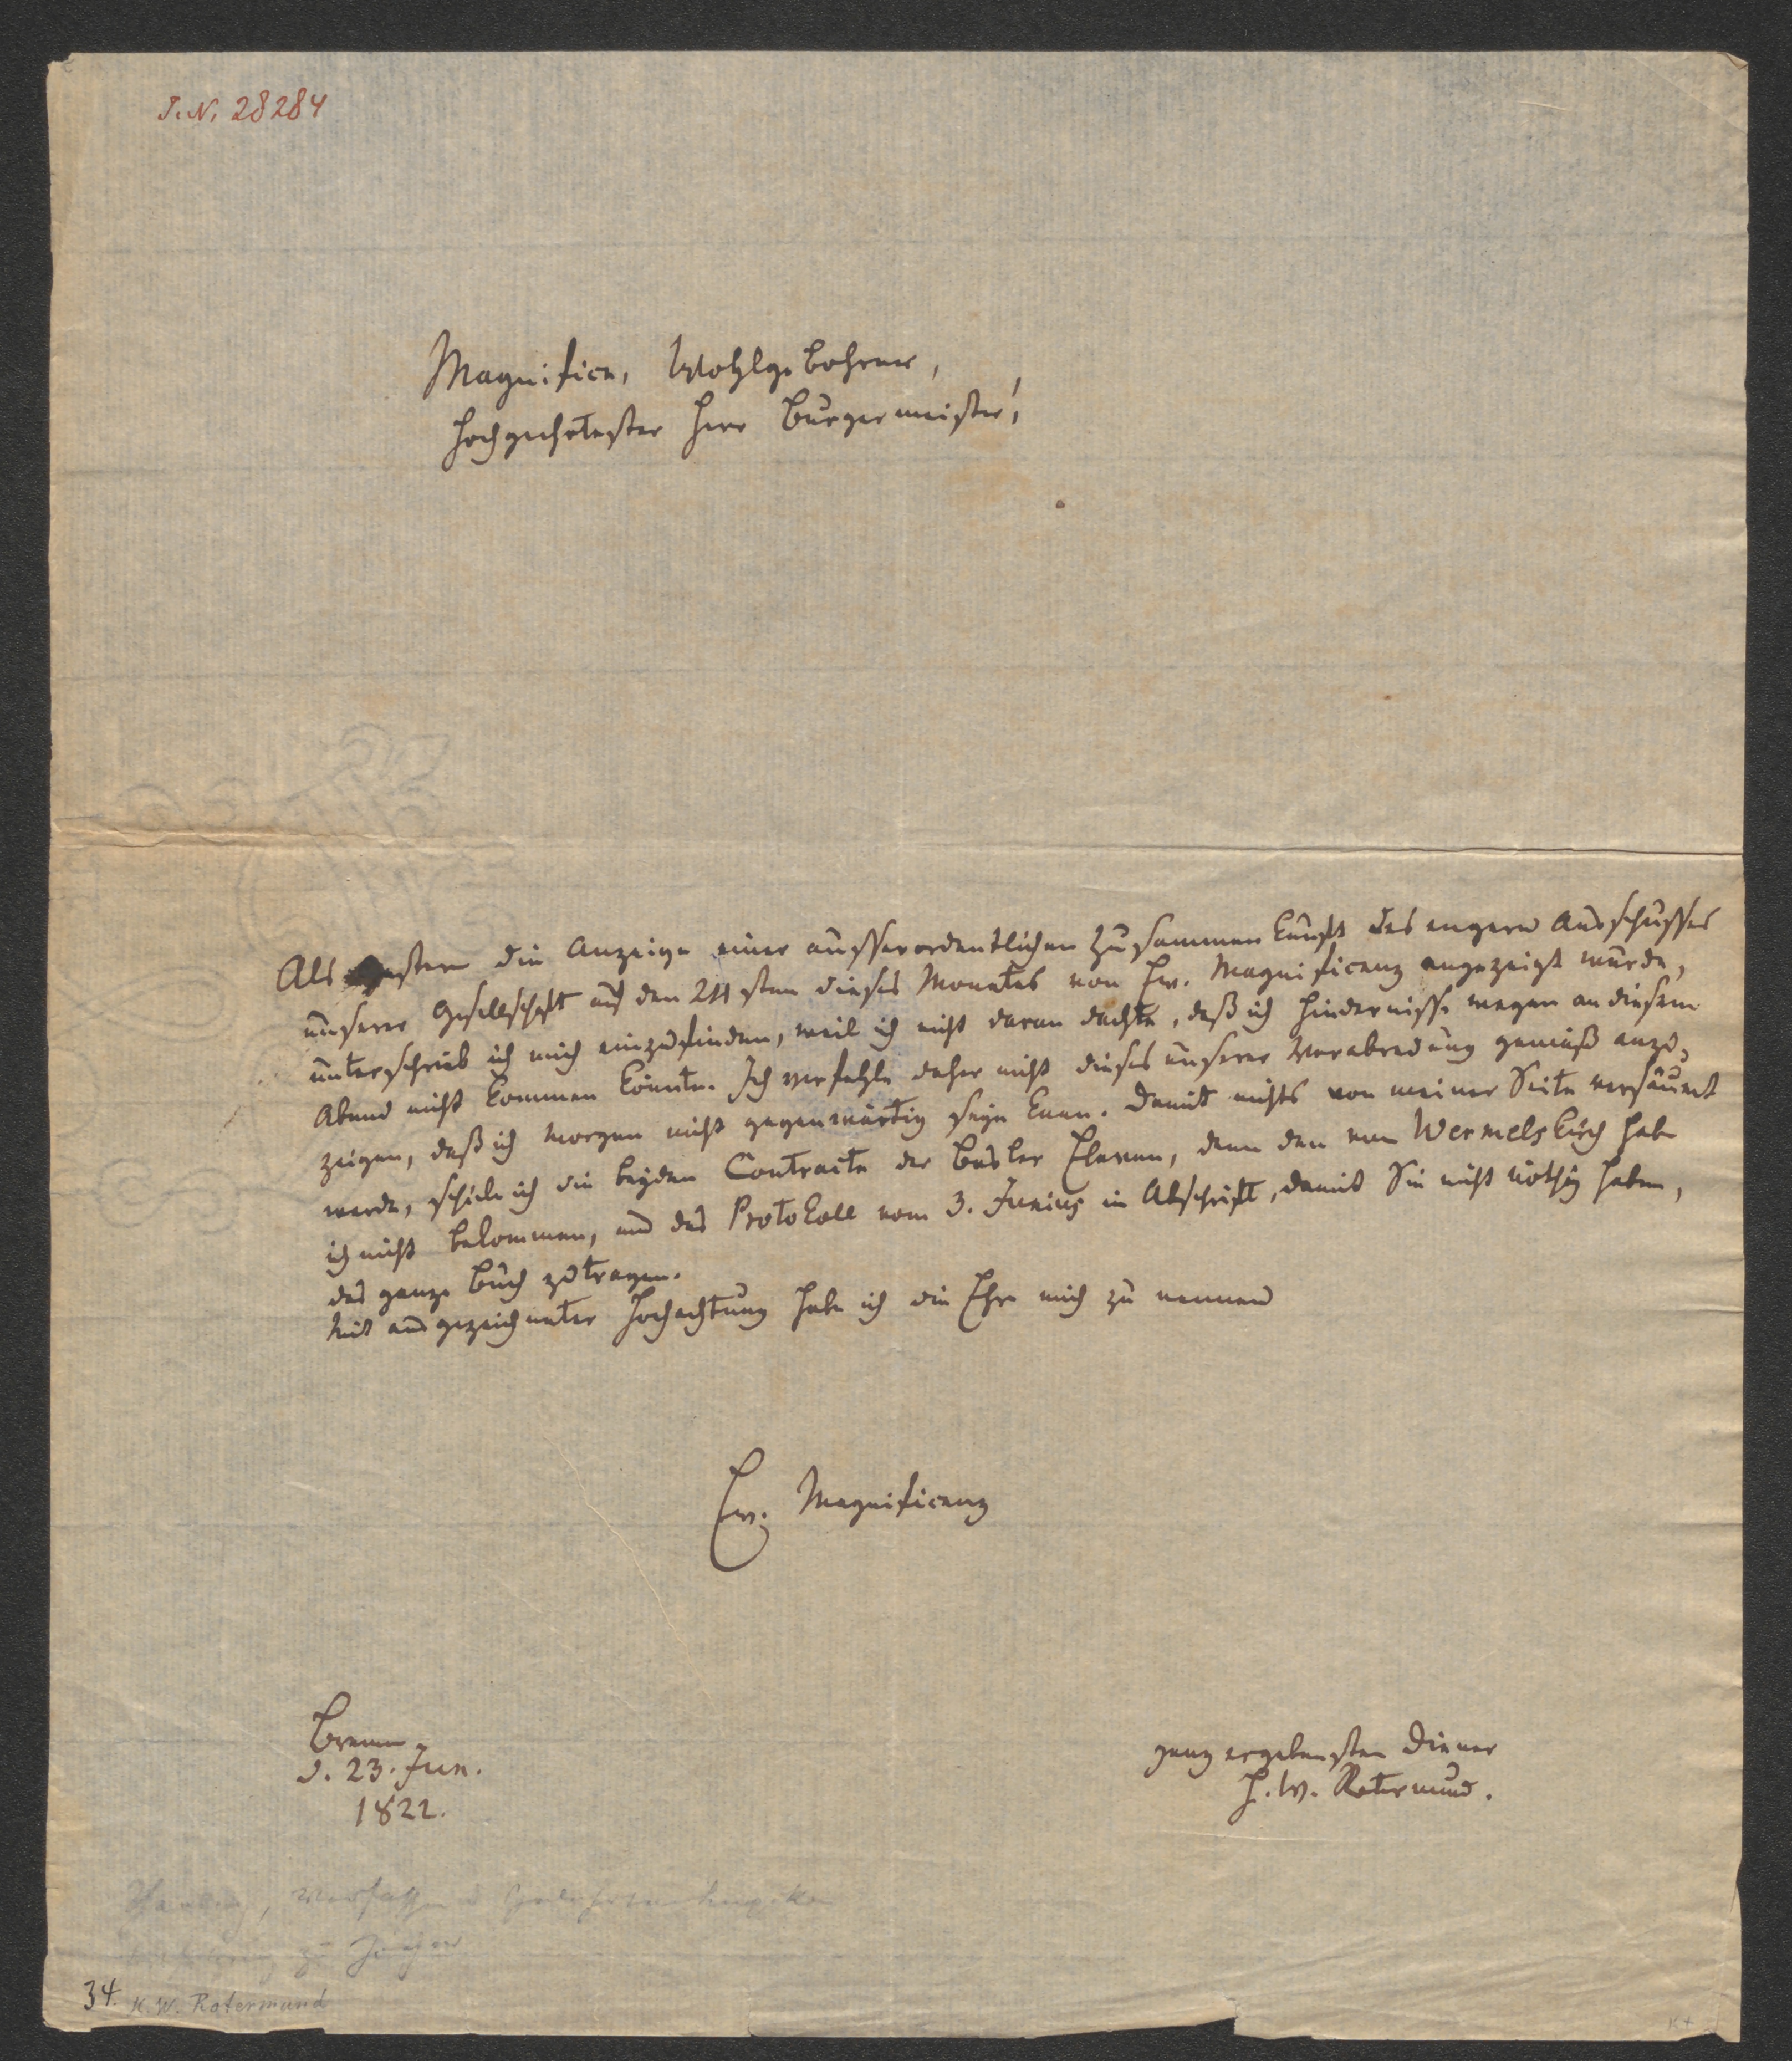 I.N. 28284
Magnifice, Wohlgebohrner,
Hochgeehrtester Herr Burgermeister!
Als gestern die Anzeige einer ausserordentlichen Zusammenkunft des engern Ausschusses
unserer Gesellschaft auf den 24sten dieses Monates von Ew. Magnificenz angezeigt wurde,
unterschrieb ich mich einzufinden, weil ich nicht daran dachte, daß ich Hindernisse wegen an diesem
Abend nicht kommen könnte. Ich verfehle daher nicht dieses unserer Verabredung gemäß anzu-
zeigen, daß ich Morgen nicht gegenwärtig seyn kann. Damit nichts von meiner Seite versäumt
werde, schicke ich die beyden Contracte der Basler Eleven, denn den von Wermelskirch habe
ich nicht bekommen, und das Protokoll vom 3. Junius in Abschrift, damit Sie nicht nöthig haben,
das ganze Buch zu tragen.
Mit ausgezeichneter Hochachtung habe ich die Ehre mich zu nennen
Ew. Magnificenz
Bremen
d. 23. Jun.
1822.
ganz ergebensten Diener
H. W. Rotermund.
Verfasser d Gelehrtenlexikon
zu Jöcher
34. H. W. Rotermund